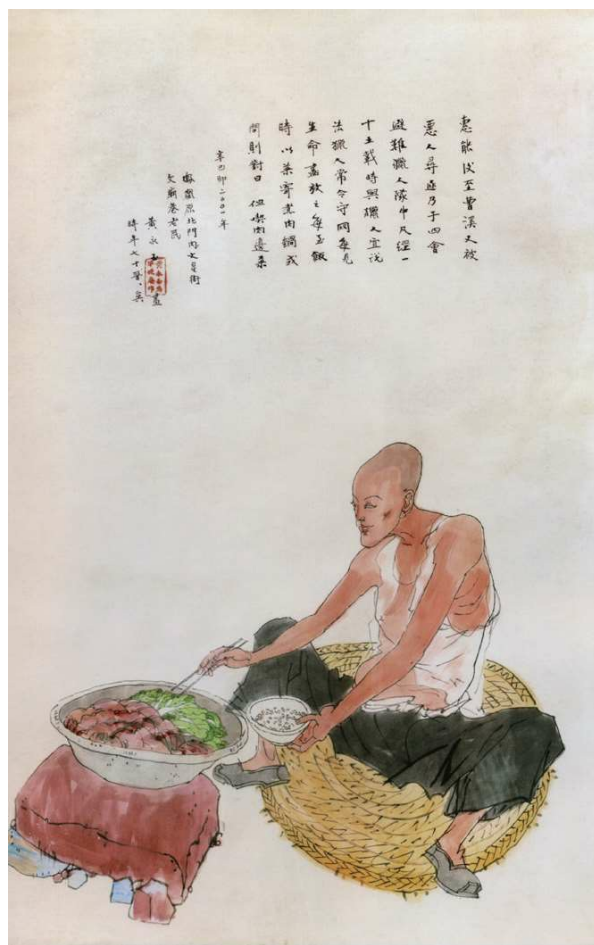 惠能後至曹溪又被
惡人尋逐乃于四會
避難獵人隊中凡經一
十五載時與獵人宜說
法獵人常令守網每見
生命盡放之每至飯
時以菜寄煮肉鍋或
問則對曰但喫肉邊菜
辛巳即二〇〇一年
北門內文星街
文廟巷老民
黃永玉畫
時年七十矣